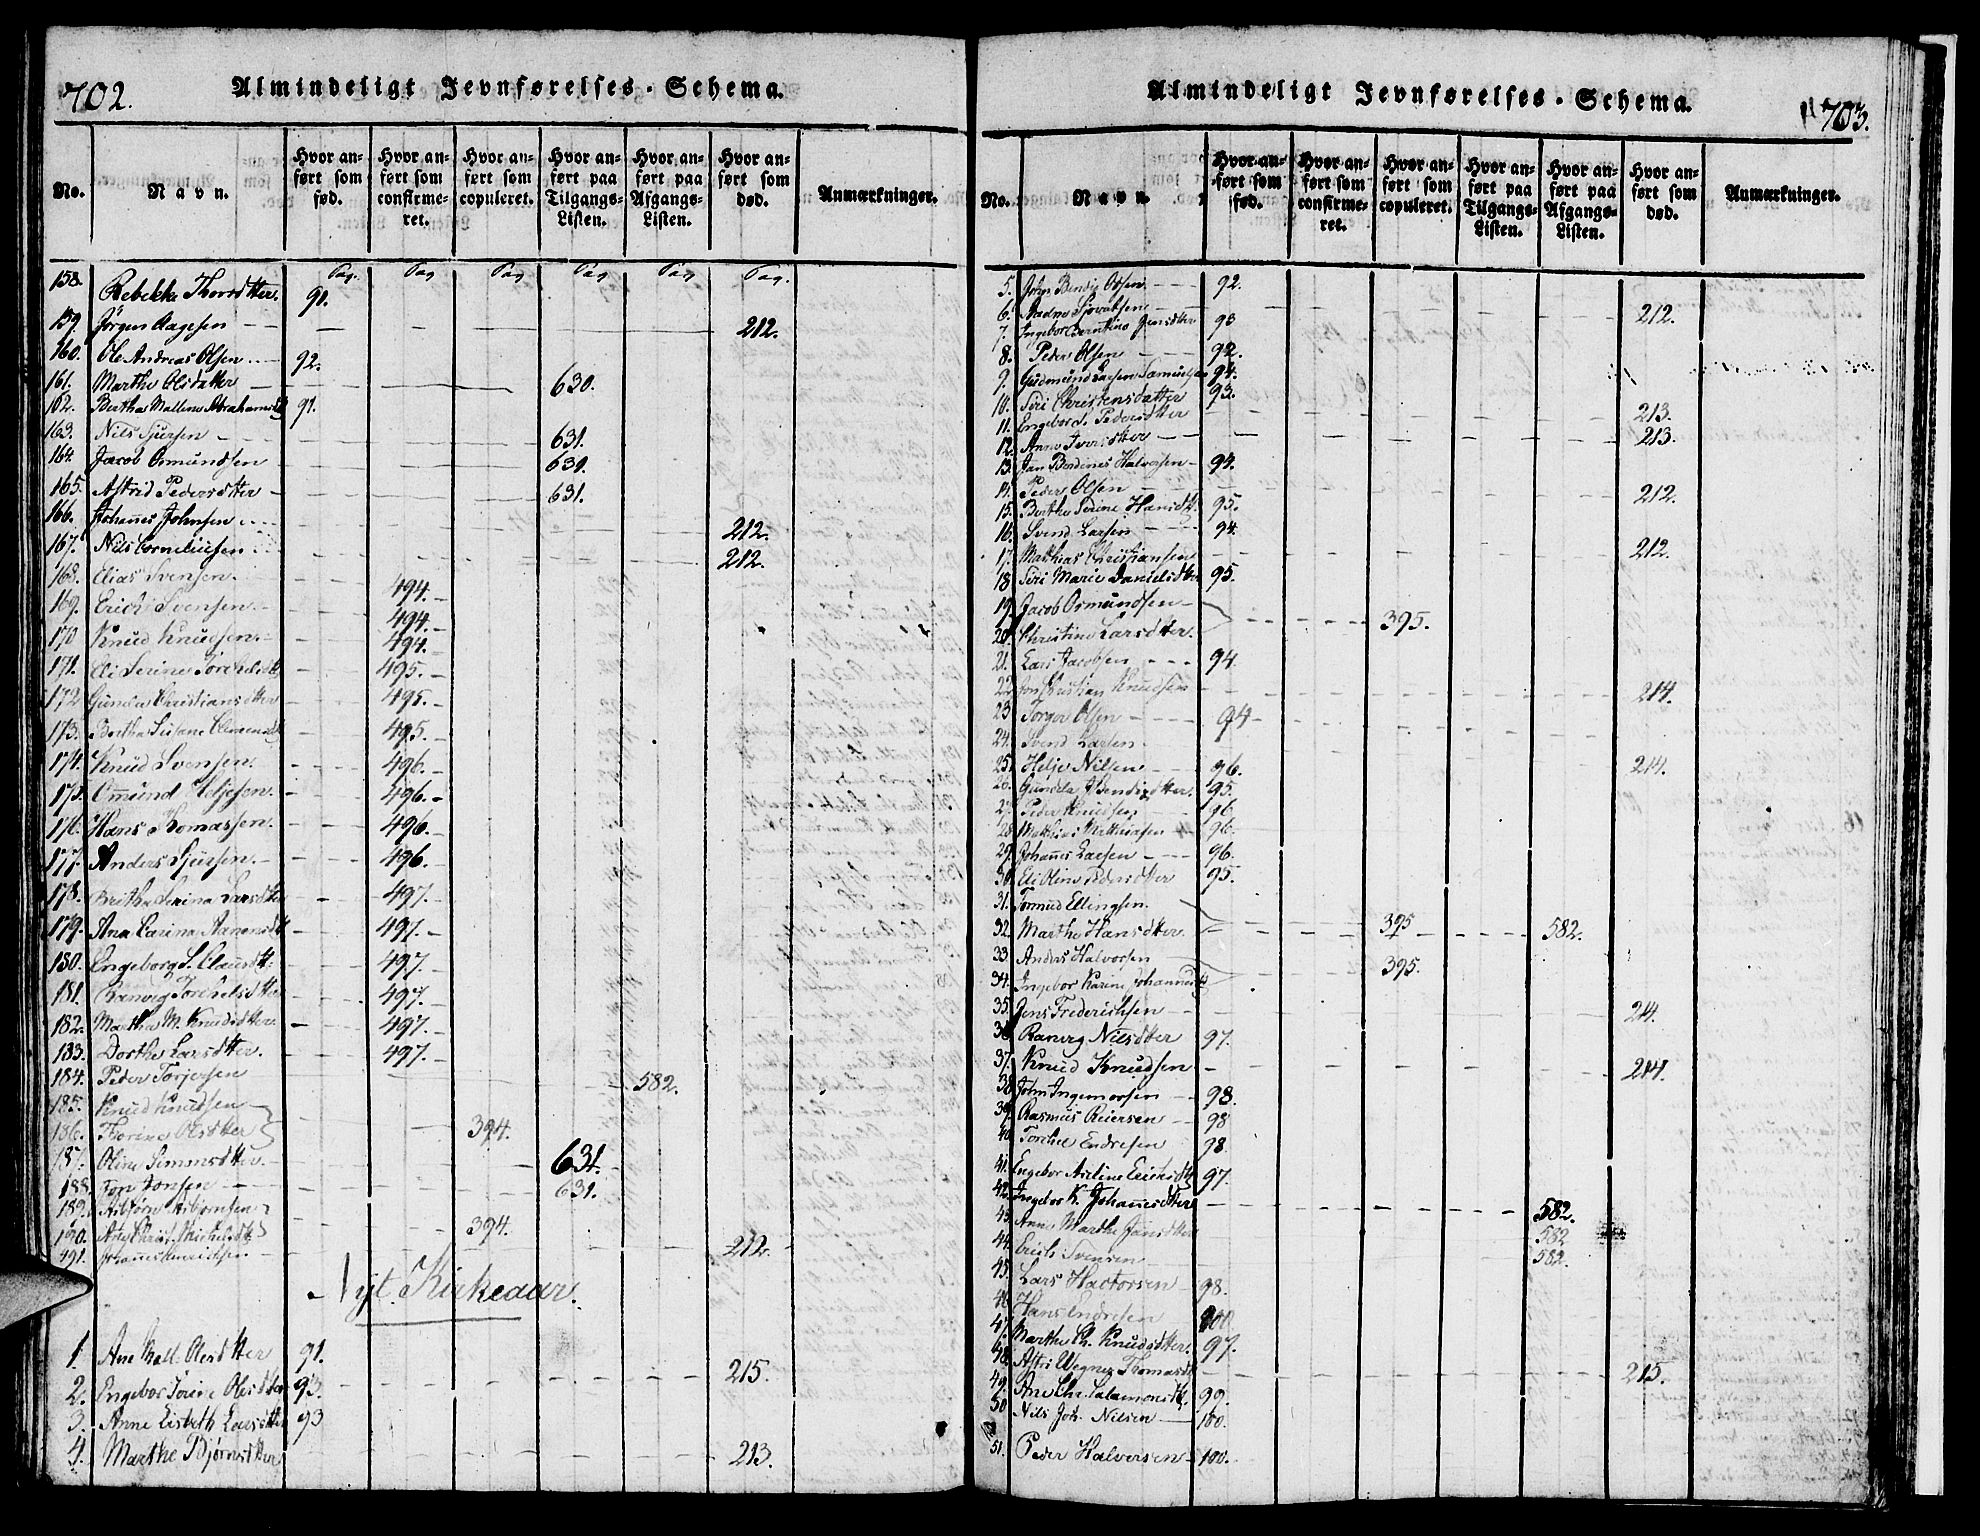 702.
Almindeligt Jevnførelses-Schema.
No. Navn. Hvor anført som fød. Hvor anført som confirmeret. Hvor anført som copuleret. Hvor anført paa Tilgangs-Listen. Hvor anført paa Afgangs-Listen. Hvor anført som død. Anmærkninger.
Pag. Pag Pag Pag Pag Pag.
158. Rebekka Thorsdtter. 91.
159. Jörgen Aagesen 212.
160. Ole Andreas Olsen 92.
161. Marthe Olsdatter 630.
162. Berthe Mallene Abrahamsd 91.
163. Nils Sjursen 631.
164. Jacob Osmundsen 631.
165. Astrid Pedersdtter 631.
166. Johannes Johnsen 212.
167. Nils Corneliusen 212.
168. Elias Svensen 494.
169. Erich Svensen 494.
170 Knud Knudsen 494.
171. Eli Serine Torkelsdt 495.
172 Gunder Christiansdtter 495.
173. Berthe Susane Clemensd 495.
174. Knud Svensen 496.
175. Omund Heljesen 496.
176. Hans Thomassen 496.
177. Anders Sjursen 496.
178. Brithe Serina Larsdtter 497.
179. Ana Carina Aanensdt 497.
180. Engeborg S. Clausdt. 497.
181. Ranveg Torkelsdtter 497.
182. Marthe M. Knudsdtter 497.
183. Dorthe Larsdtter. 497.
184. Peder Torjersen 582.
185. Knud Knudsen
186. Thorine Olsdtter 394.
187. Oline Simmsdtter 631.
188. Jon Jonsen 631.
189. Asbjörn Asbjornsen
190. Ane Christ. Michelsdt 394.
191. Johannes 212.
Nyt Kirkeaar.
1. Ane Mall. Olesdtter 91.
2. Engebor Serine Olesdtter 93. 215.
3. Anne Lisbeth Larsdtter 93
4. Marthe Bjørnsdtter 213.
703.
Almindeligt Jevnførelses-Schema.
No. Navn. Hvor anført som fød. Hvor anført som confirmeret. Hvor anført som copuleret. Hvor anført paa Tilgangs-Listen. Hvor anført paa Afgangs-Listen. Hvor anført som død. Anmærkninger.
5. John Bendix Olsen 92.
6. Sjovalsen 212.
7. Ingebor Berntine Jensdtter 93
8. Peder Olsen 92.
9. Gudmund Larsen Samuelsen 94.
10. Siri Christensdatter 93.
11. Engebor S. Pedersdtter 213.
12. Anne Iversdtter 213.
13. Jan Berdines Halvorsen 94.
14. Peder Olsen 212.
15. Berthe Serine Hansdt. 95.
16. Svend Larsen 94.
17. Mathias Christiansen 212.
18 Siri Marie Danielsdtter 95.
19. Jacob Osmundsen
20. Christine Larsdtter. 395.
21. Lars Jacobsen 94.
22 Jon Christian Knudsen 214.
23 Torger Olsen 94
24. Svend Larsen
25. Helje Nilsen 96. 214.
26. Gunilda Bendixdtter. 95.
27. Peder Knudsen 96.
28. Mathias Mathiasen 96.
29. Johannes Larsen 96.
30. Eli Oline Pedersdtter 95.
31. Tormud Ellingsen
32. Marthe Hansdtter 395 582.
33. Anders Halvorsen
34. Ingebor Karine Johannesd 395.
35. Jens Frederichsen 214.
36 Ranveg Nilsdtter 97.
37. Knud Knudsen 214.
38 John Ingemorsen 98.
39 Rasmus Reiersen 98
40. Torchel Endresen 98.
41. Engebor Axeline Ericksdt 97.
42. Ingebor K. Johannesdtter 582.
43. Anne Marthe Jansdtter 582
44. Erich Svensen 582.
45. Lars Hactorsen 98.
46. Hans Endresen 100
47. Marthe Ch. Knudsdtter. 97.
48. Astri Wegner Thomasdt 215.
49. Ane Chr. Salamonsdt. 99.
50 Nils Joh. Nilsen 100.
51. Peder Halversen 100.